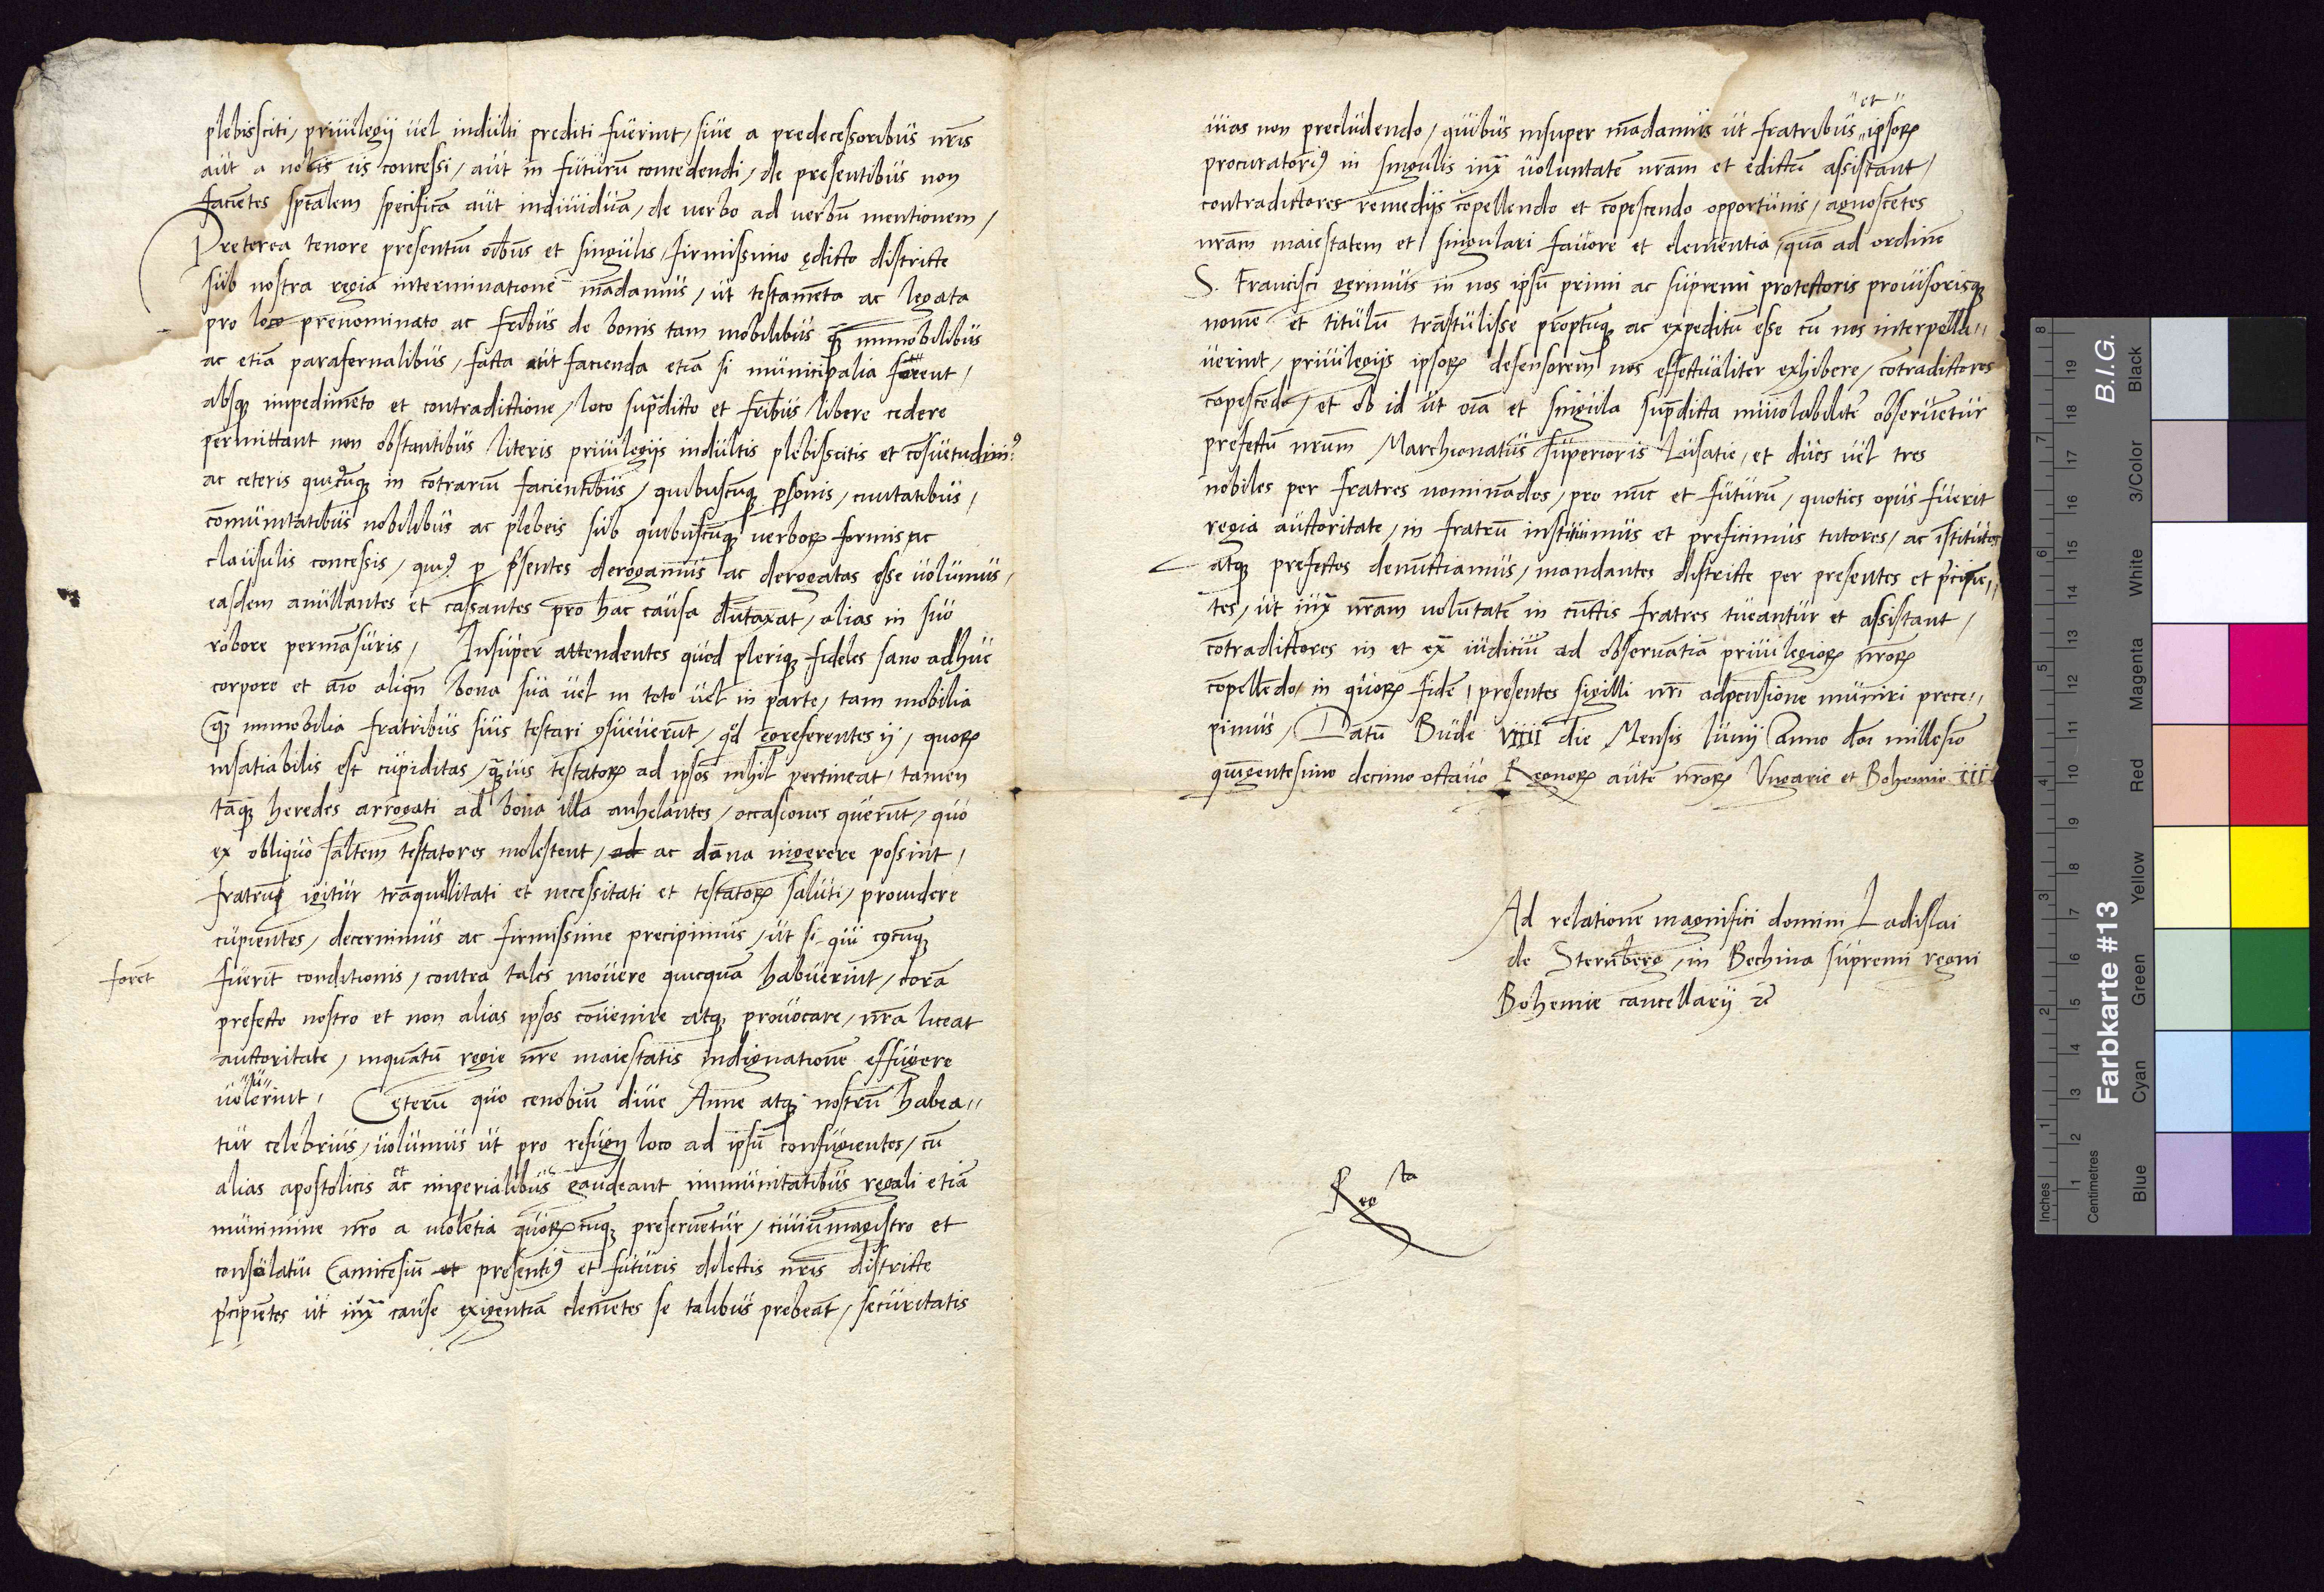 plebisciti, priuilegij uel indulti prediti fuerint, siue a predecessoribus nr̃is
aut a nobis eis concessi, aut in futurũ concedendi, de presentibus non
faciẽtes spẽalem specificã aut indiuiduã, de uerbo ad uerbũ mentionem,
Preterea tenore presentiũ oĩbus et singulis, firmissimo ędicto districte
sub nostra regia interminatione mãdamus, ut testamẽta ac legata
pro loco prenominato ac fr̃ibus de bonis tam mobilibus q̃ȝ immobilibus
ac etiã parafernalibus, facta aut facienda etiã si municipalia forent,
absqȝ impedimẽto et contradictione, loco supr̃dicto et fr̃ibus libere cedere
permittant non obstantibus literis priuilegijs indultis plebiscitis et cõsuetudiniꝰ
ac ceteris quicũqȝ in cõtrariũ facientibus, quibuscũqȝ p̱sonis, ciuitatibus,
cõmunitatibus nobilibus ac plebeis sub quibuscũqȝ uerboꝝ formis ac
clausulis concessis, quiꝰ p̱ p̃sentes derogamus ac derogatas esse uolumus,
easdem anullantes et cassantes pro hac causa dũtaxat, alias in suo
robore permãsuris, Insuper attendentes quod pleriqȝ fideles sano adhuc
corpore et aĩo aliqñ bona sua uel in toto uel in parte, tam mobilia
q̃ȝ immobilia fratribus siue testari ꝯsueuerũt, qđ egreferentes ij, quoꝝ
insatiabilis est cupiditas, q̃ȝuis testatoꝝ ad ipsos nihil pertineat, tamen
tãqȝ heredes arrogati ad bona illa anhelãtes, occasiones querũt, quo
ex obliquo saltem testatores molestent, ad ac dãna ingerere possint,
fratruȝ igitur trãquillitati et necessitati et testatoꝝ saluti, prouidere
cupientes, decernimus ac firmissime precipimus, ut si qui cꝯcũqȝ
foret
fuerit conditionis, contra tales mouere quicquã habuerint, corã
prefecto nostro et non alias ipsos cõuenire atqȝ prouocare, nr̃a liceat
auctoritate, inquãtũ regie nr̃e maiestatis indignationẽ effugere
uoluerint, Cęterũ quo cenobiũ diue Anne atqȝ nostrũ habea„
tur celebrius, uolumus ut pro refugij loco ad ipsũ confugientes, cũ
alias apostolicis ac et imperialibus gaudeant immunitatibus regali etiã
munimine nr̃o a uiolẽtia quoꝝcũqȝ preseruẽtur, ciuiũmagistro et
consulatui Camicẽsiũ et presentiꝰ et futuris dilectis nr̃is districte
p̃cipiẽtes ut iuxͣ cause exigentiã clemẽtes se talibus prebeãt, securitatis
uias non precludendo, quibus insuper mãdamus ut fratribus „et„ ipsoꝝ
procuratoriꝰ in singulis iuxͣ uoluntatẽ nr̃am et edictũ assistant,
contradictores remedijs cõpellendo et cõpescendo opportunis, agnoscẽtes
nr̃am maiestatem et singulari fauore et clemẽntia, quã ad ordinẽ
S. Francisci gerimus in nos ipsũ primi ac supremi protectoris prouisorisqȝ
nomẽ et titulũ trãstulisse prõptũqȝ ac expeditũ esse cũ nos interpella„
uerint, priuilegijs ipsoꝝ defensorem nos effectualiter exhibere, cõtradictores
cõpescẽdo, et ob id ut oĩa et singula supr̃dicta inuiolabilitẽ obseruẽtur
prefectũ nr̃um Marchionatus superioris Lusatie, et duos uel tres
nobiles per fratres nominãdos, pro nũc et futurũ, quoties opus fuerit
regia auctoritate, in fratrũ instituimus et preficimus tutores, ac ĩstitutos
atqȝ prefectos denũctiamus, mandantes districte per presentes et p̃cipiẽ„
tes, ut iuxͣ nr̃am uolũtatẽ in cũctis fratres tueantur et assistant,
cõtradictores in et ex̃ iudiciũ ad obseruãtiã priuilegioꝝ nr̃oꝝ
cõpellẽdo, in quoꝝ fidẽ, presentes sigilli nr̃i adpensione muniri prece„
pimus, Datũ Bude VIIII die Mensis Iunij Anno dñi millesĩo
quĩgentesimo decimo octauo Regnoꝝ autẽ nr̃oꝝ Vngarie et Bohemie iii
Ad relationẽ magnifici domini Ladislai
de Sternberg, in Bechina supremi regni
Bohemie cancellarij ꝛc̃
Regta
Inches
Centimetres
Farbkarte #13
B.I.G.
Blue
Cyan
Green
Yellow
Red
Magenta
White
3/Color
Black